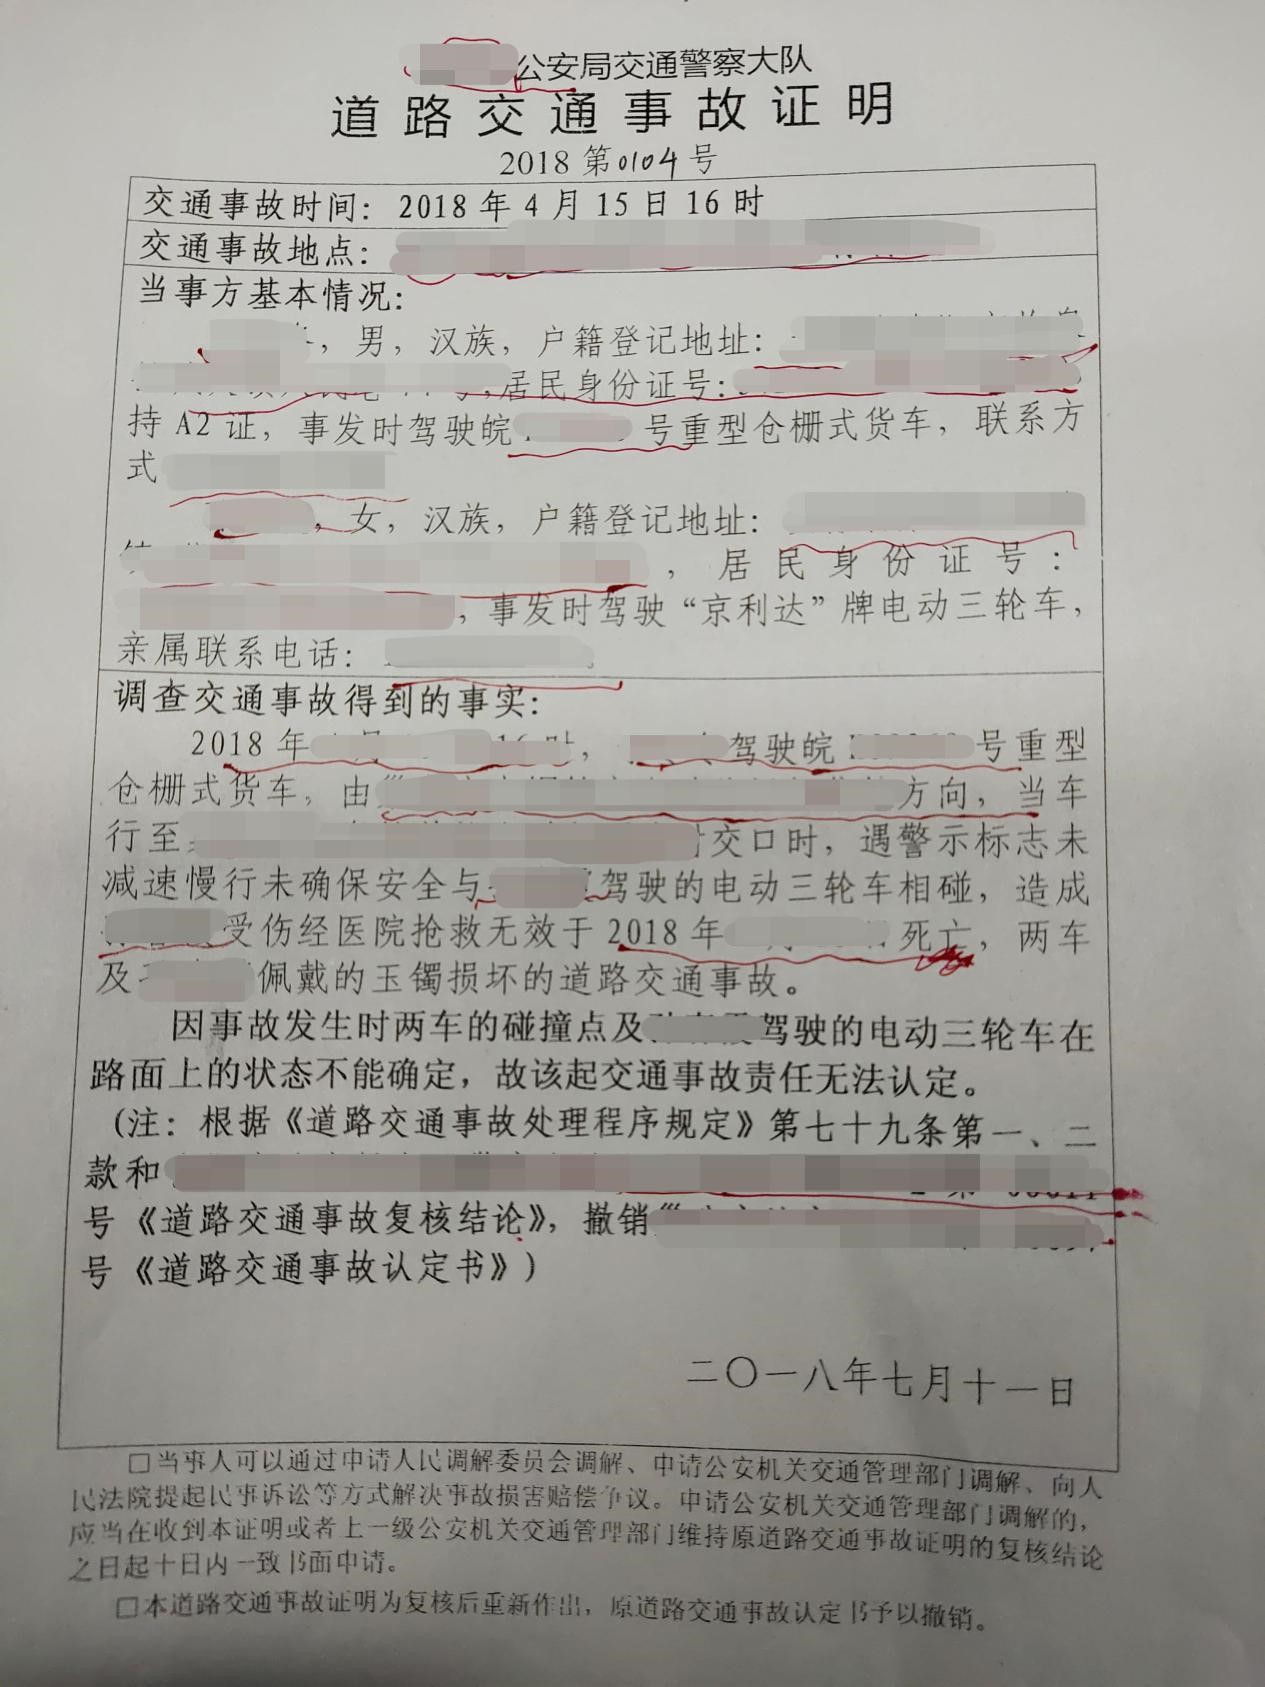 公安局交通警察大队
道路交通事故证明
2018 第0104号
交通事故时间：2018 年 4 月 15 日 16 时
交通事故地点：
当事方基本情况：
，男，汉族，户籍登记地址：
，居民身份证号：
持 A2 证，事发时驾驶皖 号重型仓栅式货车，联系方
式
，女，汉族，户籍登记地址：
，居民身份证号：
，事发时驾驶“京利达”牌电动三轮车，
亲属联系电话：
调查交通事故得到的事实：
2018 年 驾驶皖 号重型
仓栅式货车，由 方向，当车
行至 交口时，遇警示标志未
减速慢行未确保安全与 驾驶的电动三轮车相碰，造成
受伤经医院抢救无效于 2018 年 死亡，两车
及 佩戴的玉镯损坏的道路交通事故。
因事故发生时两车的碰撞点及 驾驶的电动三轮车在
路面上的状态不能确定，故该起交通事故责任无法认定。
(注：根据《道路交通事故处理程序规定》第七十九条第一、二
款和
号《道路交通事故复核结论》，撤销
号《道路交通事故认定书》)
二〇一八年七月十一日
□当事人可以通过申请人民调解委员会调解、申请公安机关交通管理部门调解、向人
民法院提起民事诉讼等方式解决事故损害赔偿争议。申请公安机关交通管理部门调解的，
应当在收到本证明或者上一级公安机关交通管理部门维持原道路交通事故证明的复核结论
之日起十日内一致书面申请。
□本道路交通事故证明为复核后重新作出，原道路交通事故认定书予以撤销。